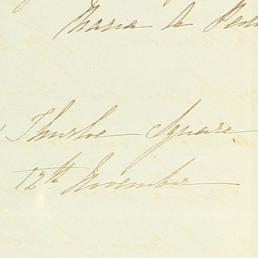 Maria de
Thurloe Square
12th November